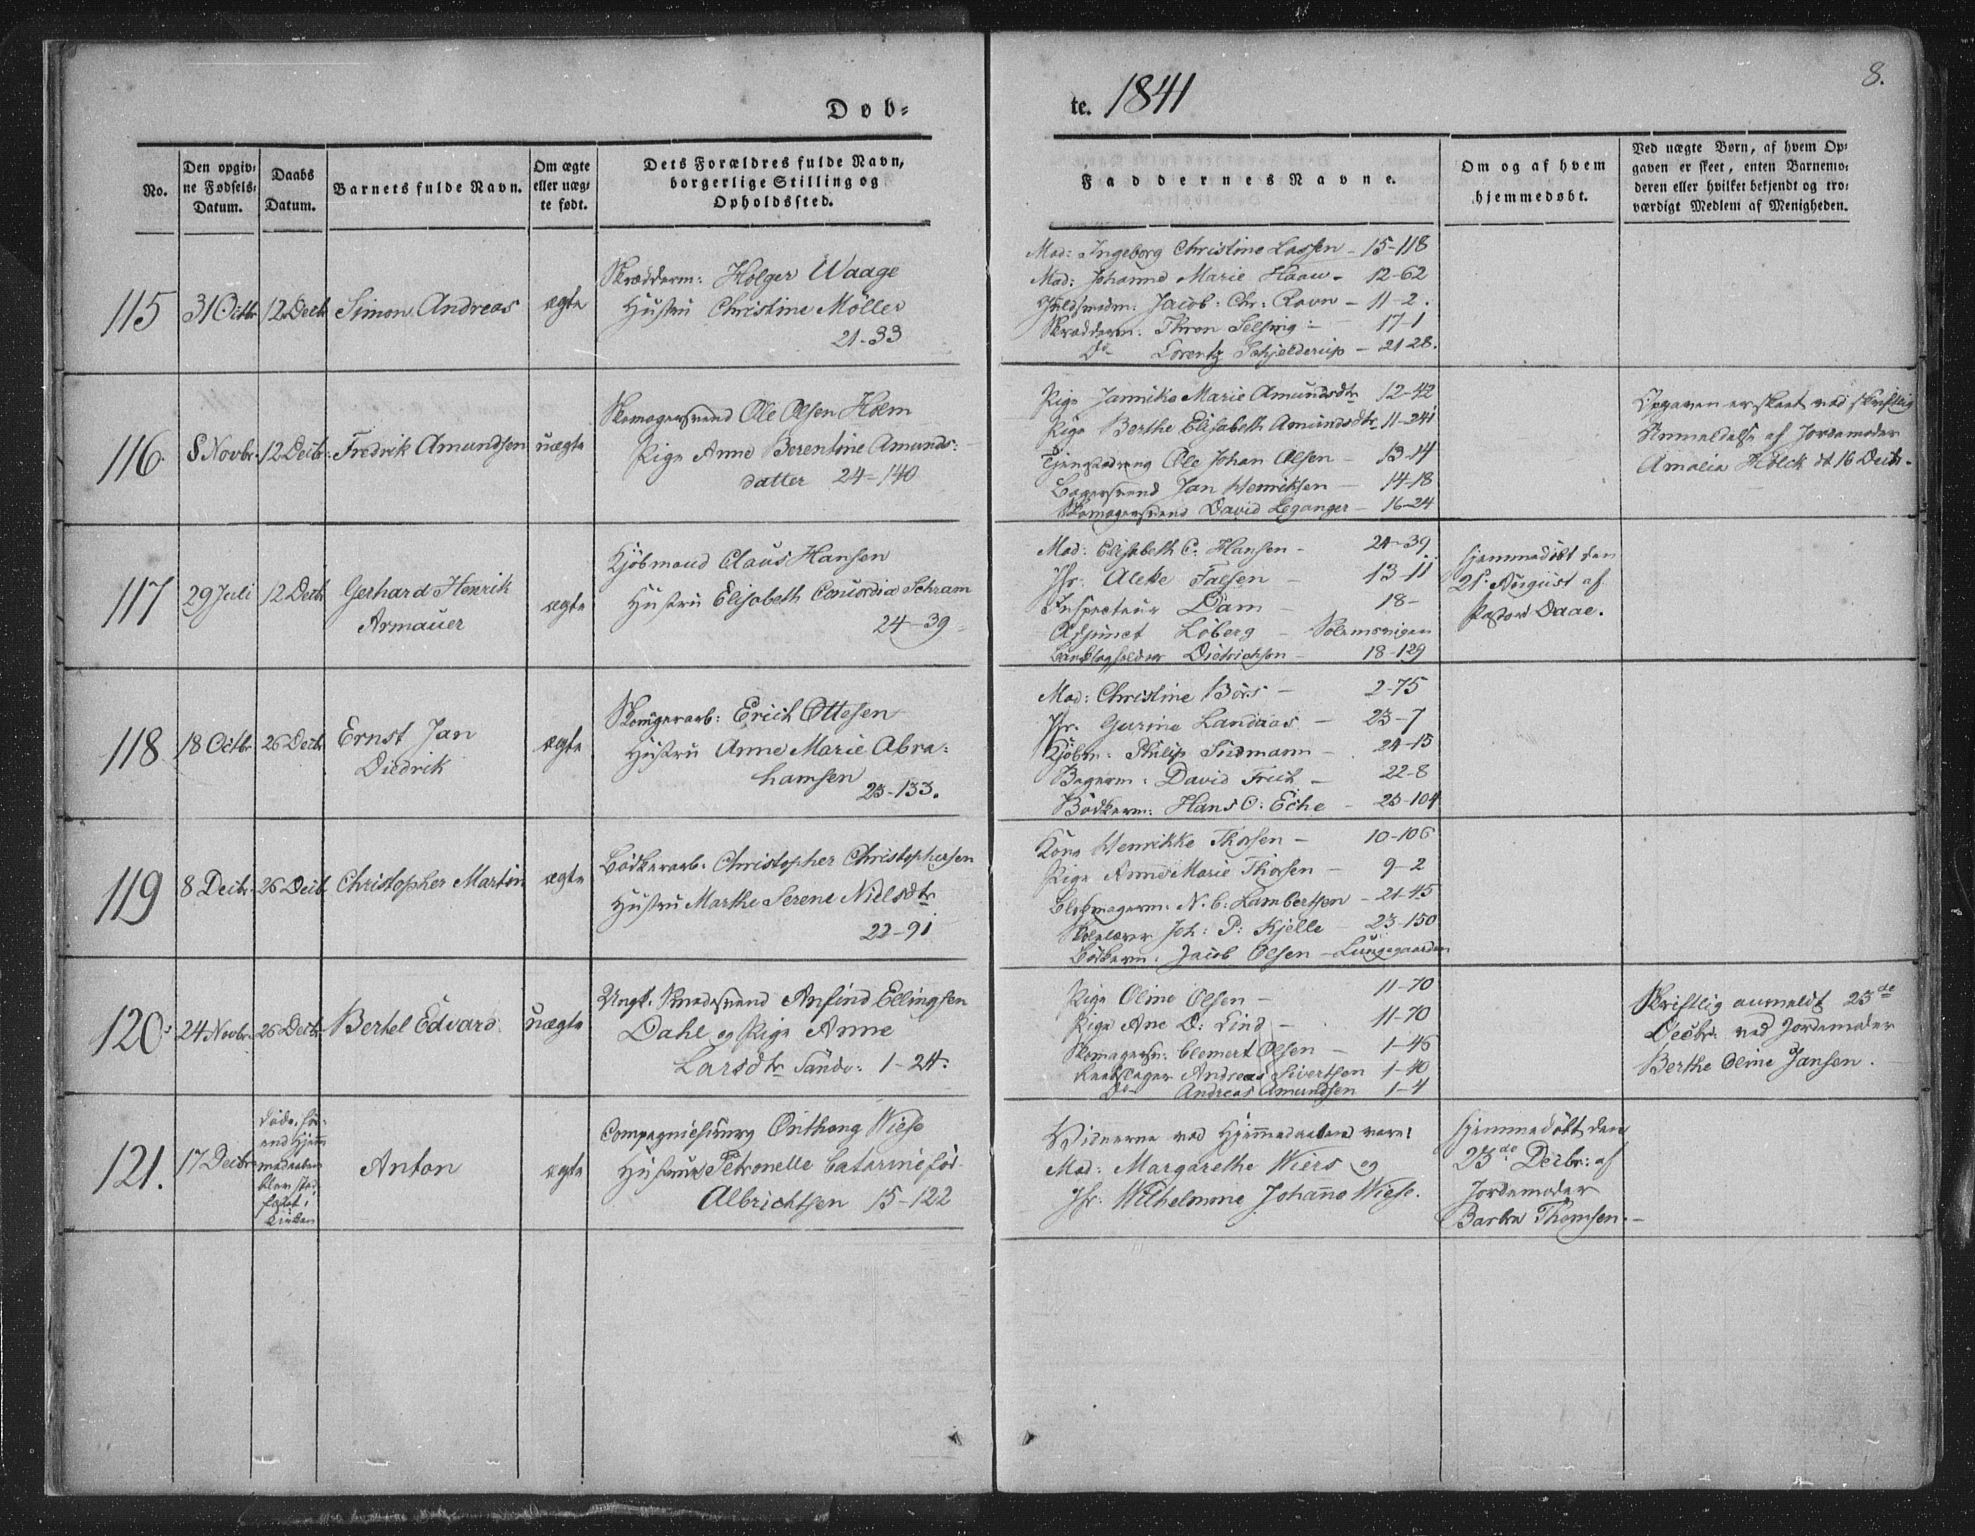 8.
Døb=
te. 1841
No.
Den opgiv=
ne Fødsels=
Datum.
Daabs
Datum.
Barnets fulde Navn.
Om ægte
eller uæg=
te født.
Dets Forældres fulde Navn,
borgerlige Stilling og
Opholdssted.
Faddernes Navne.
Om og af hvem
hjemmedøbt.
Ved uægte Børn, af hvem Op=
gaven er skeet, enten Barnemo=
deren eller hvilket bekjendt og tro=
værdigt Medlem af Menigheden.
115
31 Octbr
12 Decbr
Simon Andreas
ægte
Skrædderm: Holger Waage
Hustru Christine Möller
21-33
Mad: Ingeborg Christine Lassen - 15-118
Mad: Johanne Marie Haaw - 12-62
Guldsmedm: Jacob Chr: Ravn - 11-2.
Skrædderm: Thron Selsing - 17-1
Do Lorentz Schjelderup - 21-28.
116
8 Novbr
12 Decbr
Fredrik Amundsen
uægte
Skomagersvend Ole Olsen Holm
Pige Anne Berentine Amunds=
datter 24-140
Pige Jannike Marie Amundsdtr 12-42
Pige Berthe Elisabeth Amundsdtr 11-241
Tjenestedreng Ole Johan Olsen - 13-14
Bagersvend Jan Henriksen - 14-18
Skomagersvend David Leganger - 16-24
Opgaven er skeet ved skriftlig
Anmeldelse af Jordemoder
Amalia Holck dt 16 Decbr.
117
29 Juli
12 Decbr
Gerhard Henrik
Armauer
ægte
Kjöbmand Claus Hansen
Hustru Elisabeth Concordia Schram
24-39
Mad: Elisabeth C. Hansen - 24-39
Jfr: Aleke Falsen - 13-11
Inspecteur Dam - 18-
Adjunct Löberg -
Dietrichsen - 18-129
Hjemmedöbt den
21 August af
Pastor Daae.
118
18 Octbr
26 Decbr
Ernst Jan
Diedrik
ægte
Erich Ottesen
Hustru Anne Marie Abra=
hamsen
23-133.
Mad: Christine Börs - 2-75
Jfr. Gurine Landaas - 23-7
Kjöbm: Philip Südmann - 24-15
Bagerm: David Frich - 22-8
Bödkerm: Hans O: Eche - 23-104
119
8 Decbr
26 Decbr
Christopher Martin
ægte
Bödkerarb: Christopher Christophersen
Hustru Marthe Serene Nielsdtr
22-91
Kone Henrikke Thorsen - 10-106
Pige Anne Marie Thorsen - 9-2
Blokmagerm: N. C: Lambertsen - 21-45
Skolelærer Joh: P: Kjelle - 23-150
Bödkerm: Jacob Olsen - Lungegaarden
120
24 Novbr
26 Decbr
Bertel Edvard
uægte
Ungk. Smedesvend Anfind Ellingsen
Dahl og Pige Anne
Larsdtr Sandv: 1-24.
Pige Oline Olsen - 11-70
Pige Ane D: Lind - 11-70
Skomagersv: Clemert Olsen - 1-46
Rebslager Andreas Sivertsen 1-40
Do Andreas Amundsen 1-4
Skriftlig anmeldt 23de
Decbr: ved Jordemoder
Berthe Oline Jansen.
121.
17 Decbr
Döde, för=
end Hjem=
medaaben
blev stad=
fæstet i
Kirken
Anton
ægte
Compagniechirurg Onthong Wiese
Hustrue Petronelle Catarine föd
Albrichtsen 15-122
Vidnerne ved Hjemmedaaben vare:
Mad: Margarethe Wiers og
Jfr: Wilhelmine Johanne Wiese.
Hjemmedöbt den
23de Decbr: af
Jordemoder
Barbra Thomsen.